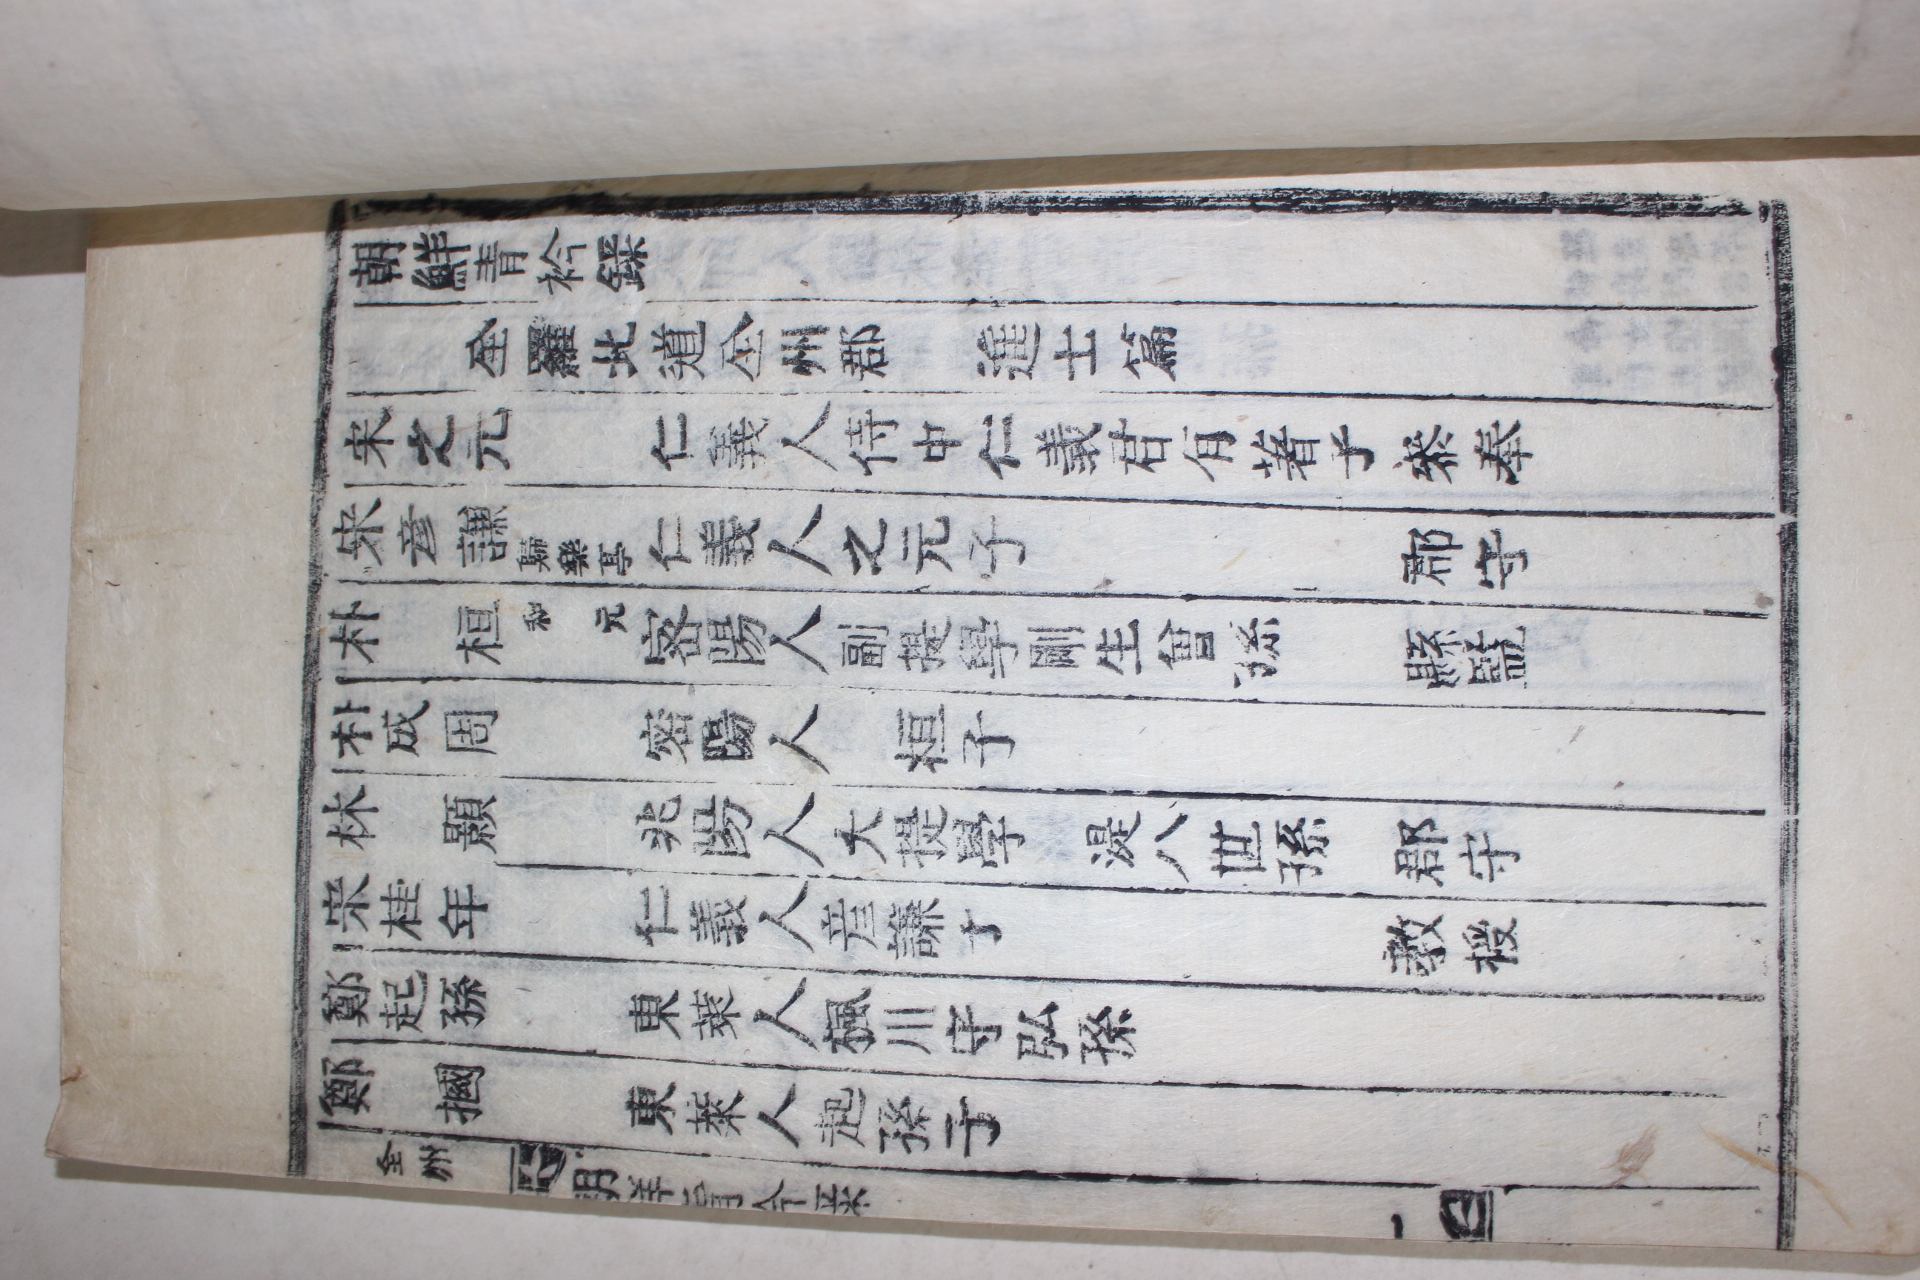 朝鮮青衿錄
全羅北道全州郡 進士篇
宋之元 仁義人侍中仁義君有著子 叅奉
宋彦謙 歸樂亭 仁義人之元子 郡守
朴桓 和元 密陽人副提學剛生曾孫 縣監
朴成周 密陽人 桓子
林顥 兆陽人大提學 湜八世孫 郡守
宋桂年 仁義人彦謙子 教授
鄭起孫 東萊人楓川守弘孫
鄭摑 東萊人起孫子
全州 朝鮮青衿錄 一